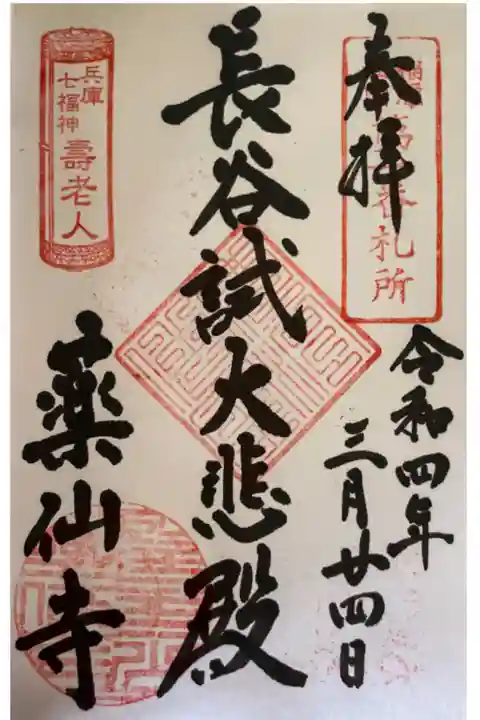 奉拝
番札所
令和四年
三月廿四日
長谷試大悲殿
兵庫
七福神
壽老人
薬仙寺